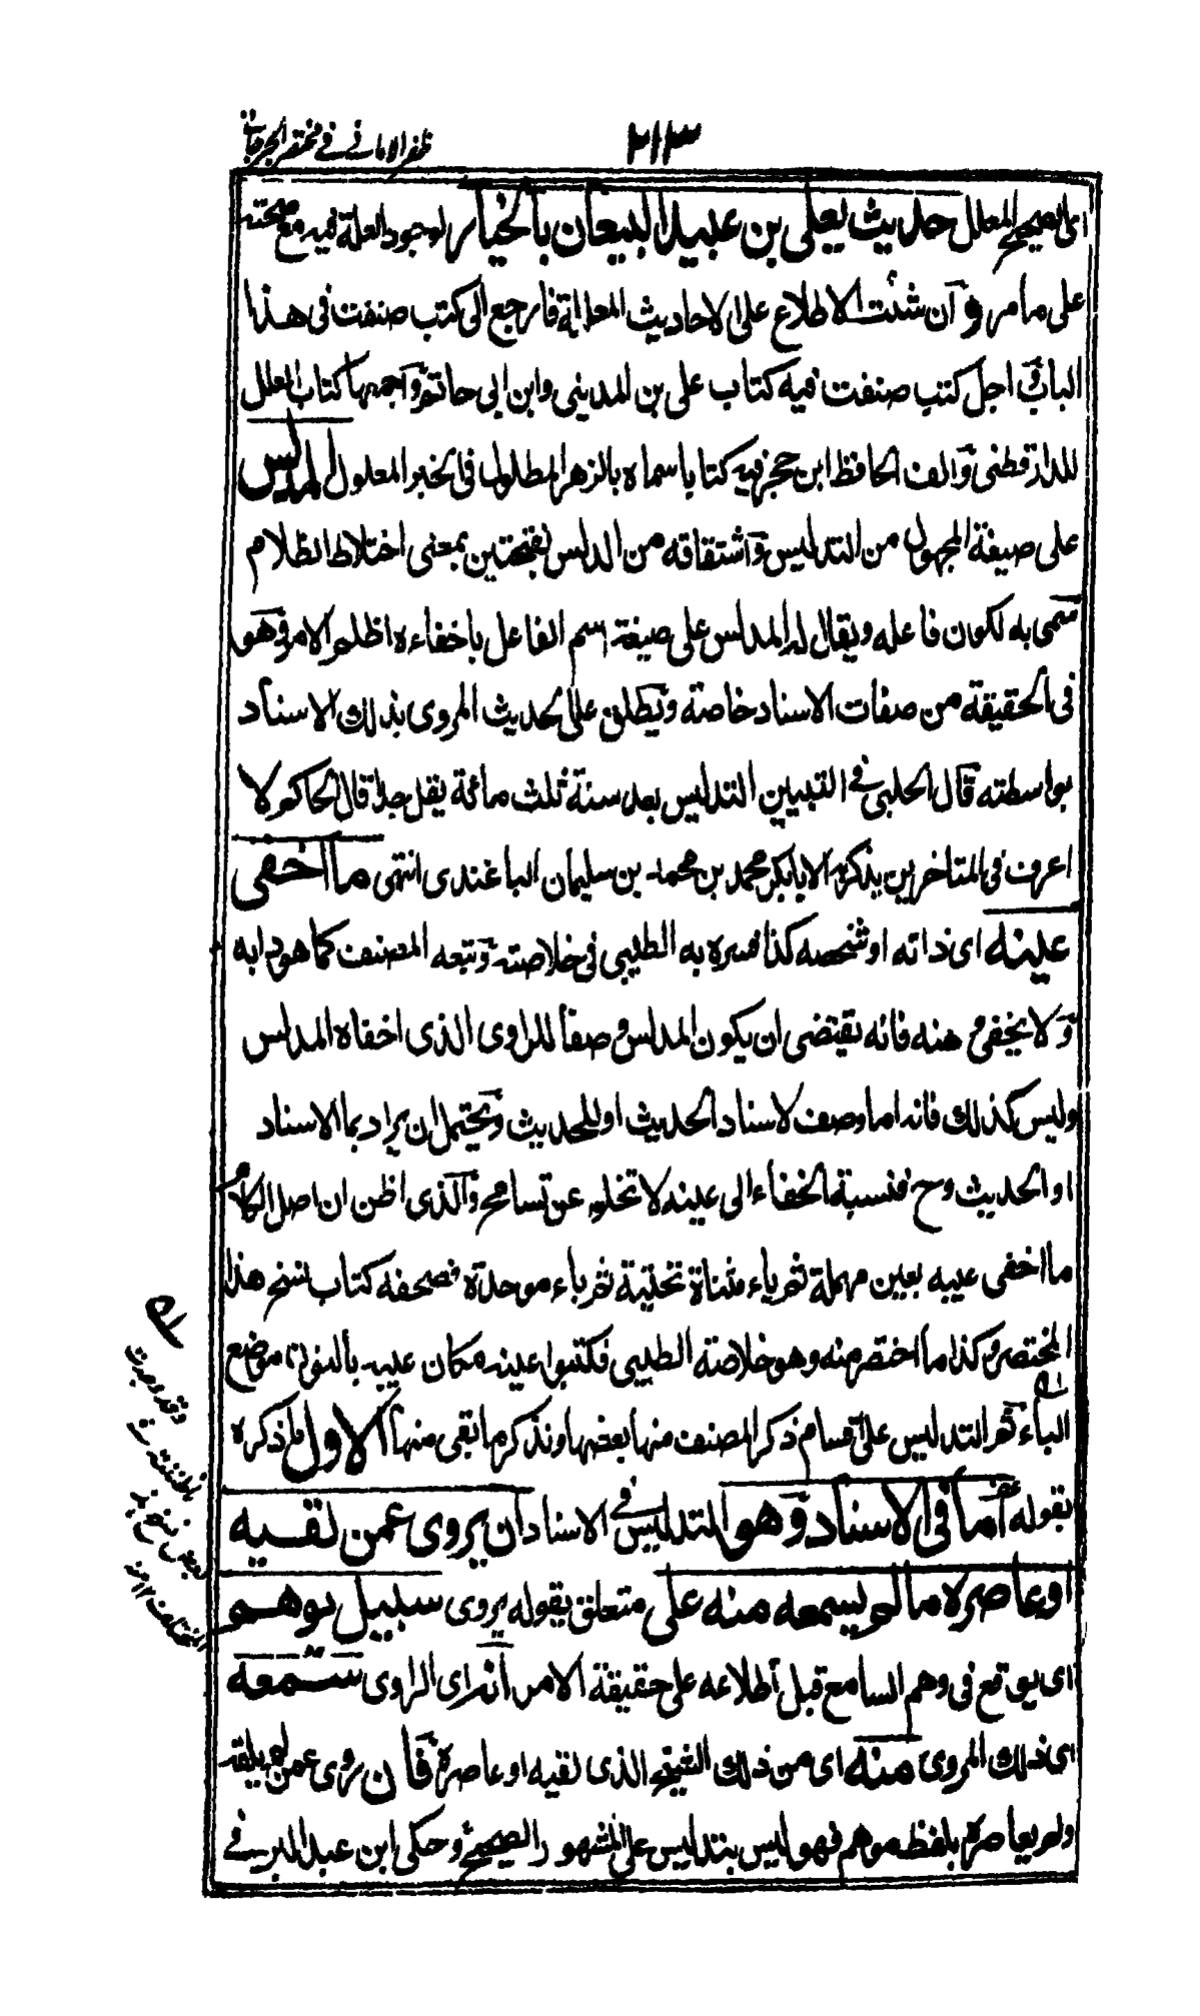 ظفر الامانی فی مختصر الجرجانی
٢١٣
ای الصحیح المعلل حدیث یعلی بن عبید البیعان بالخیار لوجود العلة فیه مع صحته
علی ما مر وان شئت الاطلاع علی الاحادیث المعللة فارجع الی کتب صنفت فی هذا
الباب واجل کتب صنفت فیه کتاب علی بن المدینی وابن ابی حاتم واجمعها کتاب العلل
للدارقطنی والف الحافظ ابن حجر فیه کتابا سماه بالزهر المطلول فی الخبر المعلول المدلس
علی صیغة المجهول من التدلیس واشتقاقه من الدلس بفتحتین بمعنی اختلاط الظلام
سمی به لکون فاعله ویقال له المدلس علی صیغة اسم الفاعل باخفاءه اظلم الامر وهو
فی الحقیقة من صفات الاسناد خاصة ویطلق علی الحدیث المروی بذلک الاسناد
بواسطته قال الحلبی فی التبیین التدلیس بعد سنة ثلث مائة یقل جدا قال الحاکم لا
اعرف فی المتاخرین یذکر به الا ابابکر محمد بن محمد بن سلیمان الباغندی انتهی ما اخفی
عینه ای ذاته او شخصه کذا فسره به الطیبی فی خلاصته وتبعه المصنف کما هو دابه
ولا یخفی وهنه فانه یقتضی ان یکون المدلس وصفا للراوی الذی اخفاه المدلس
ولیس کذلک فانه اما وصف لاسناد الحدیث او للحدیث ویحتمل ان یراد بما الاسناد
او الحدیث وح فنسبة الخفاء الی عینه لا تخلو عن تسامح والذی اظن ان اصل الکلام
ما اخفی عیبه بعین مهملة ثم یاء مثناة تحتیة ثم باء موحدة فصحفه کتاب نسخ هذا
المختصر وکذا ما اختصر منه وهو خلاصة الطیبی فکتبوا عینه مکان عیبه بالنون موضع
الباء ثم التدلیس علی اقسام ذکر المصنف منها بعضها ونذکر ما بقی منها الاول ما ذکره
بقوله اما فی الاسناد وهو التدلیس فی الاسناد ان یروی عمن لقیه
او عاصره ما لم یسمعه منه علی متعلق بقوله یروی سبیل یوهم
ای یوقع فی وهم السامع قبل اطلاعه علی حقیقة الامر انه ای الراوی سمعه
ای ذلک المروی منه ای من ذلک الشیخ الذی لقیه او عاصره فان روی عمن لم یلقه
ولم یعاصره بلفظ موهم فهو لیس بتدلیس علی المشهور الصحیح وحکی ابن عبد البر فی
وقد وجدت